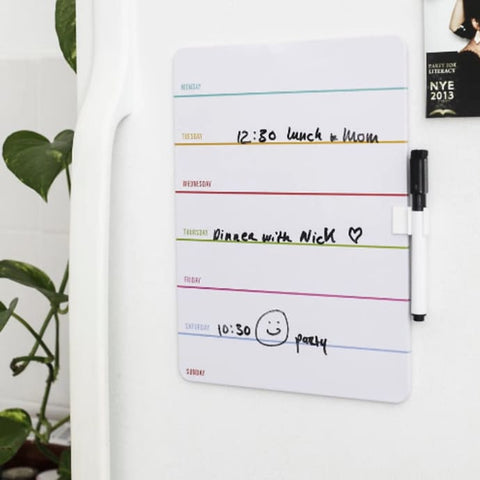 MONDAY
TUESDAY 12:30 lunch w Mom
WEDNESDAY
THURSDAY Dinner with Nick ♡
FRIDAY
SATURDAY 10:30 party
SUNDAY
PARTY FOR
LITERACY
NYE
2013